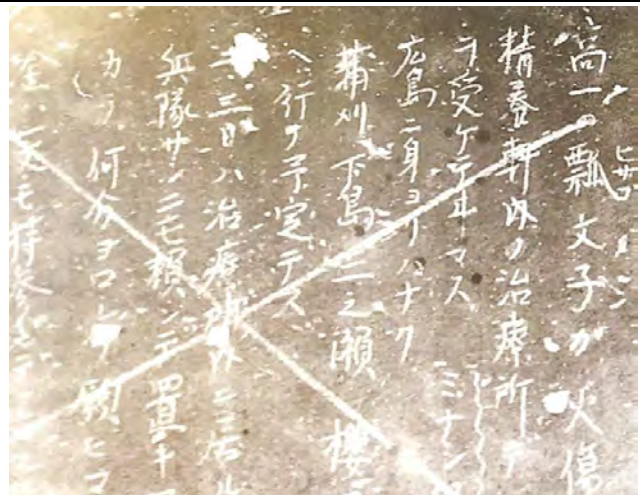 高一の瓢文子ガ火傷
精養軒内ノ治療所デ
ヲ受ケテヰマス
広島ニ身ヨリハナク
蒲刈下島三之瀬 櫻
ヘ行ク予定デス
二、三日ハ治療所内ニ居ル
兵隊サンニモ頼ンデ置キマ
カラ何分ヨロシク願ヒマ
金一文モ持参シテ